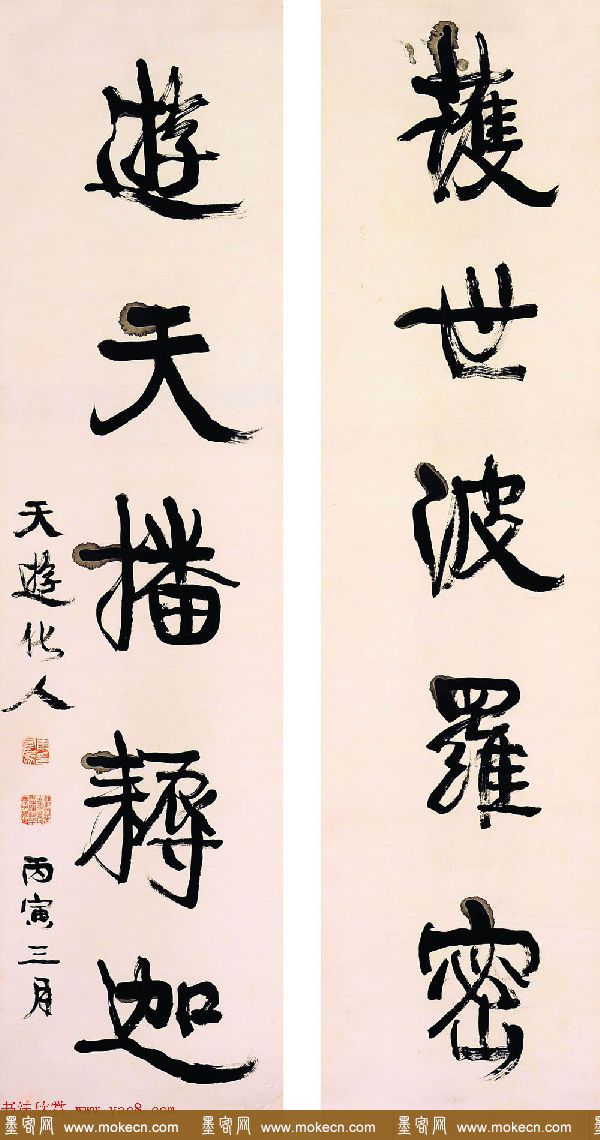 護世波羅密
遊天播耨迦
天遊化人
丙寅三月
墨客网 www.mokecn.com 墨客网 www.mokecn.com 墨客网 www.mokecn.com